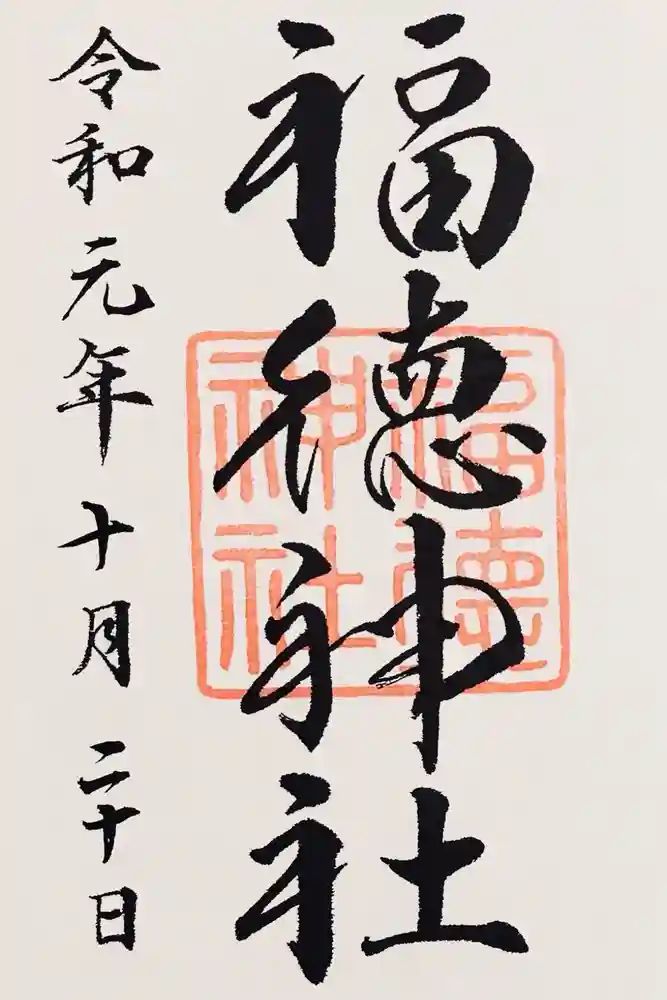 福徳神社
福徳神社
令和元年十月二十日